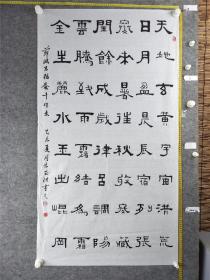 天地玄黃宇宙洪荒
日月盈昃辰宿列張
寒來暑往秋收冬藏
閏餘成歲律呂調陽
雲騰致雨露結為霜
金生麗水玉出崐岡
千字文 乙巳夏月